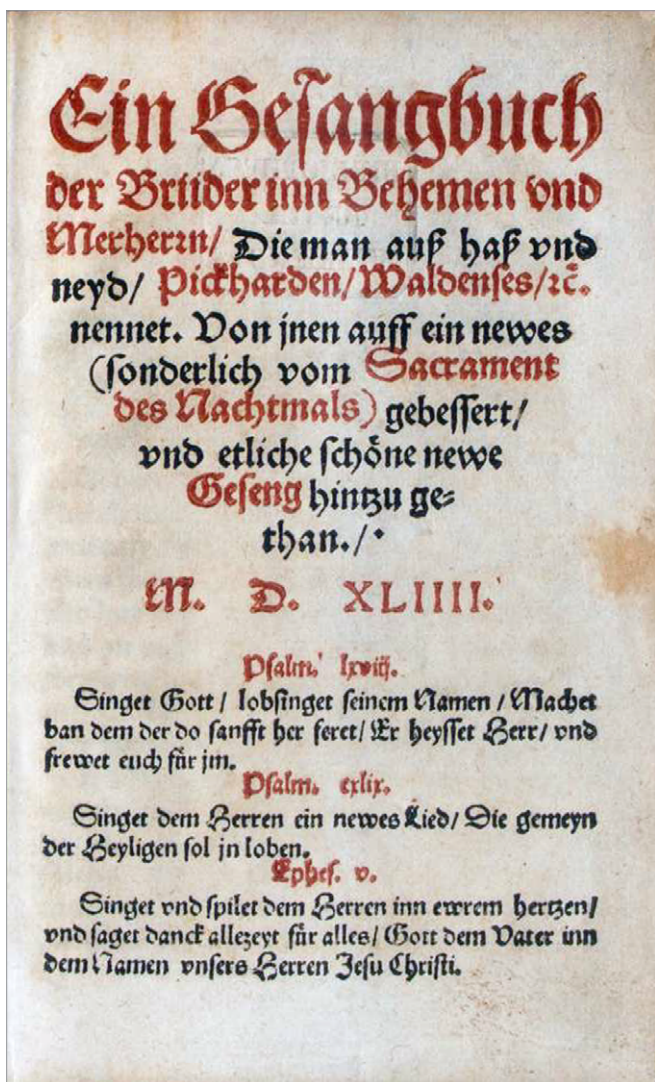 Ein Gesangbuch
der Brüder inn Behemen vnd
Merherrn/ Die man auß haß vnd
neyd/ Pickharden/ Waldenses/ ꝛc̃.
nennet. Von jnen auff ein newes
(sonderlich vom Sacrament
des Nachtmals) gebessert/
vnd etliche schöne newe
Geseng hintzu ge⸗
than./•
M. D. XLIIII.
Psalm. lxviij.
Singet Gott / lobsinget seinem Namen / Machet
ban dem der do sanfft her feret/ Er heysset Herr/ vnd
frewet euch für jm.
Psalm. cxlix.
Singet dem Herren ein newes Lied/ Die gemeyn
der Heyligen sol jn loben.
Ephes. v.
Singet vnd spilet dem Herren inn ewrem hertzen/
vnd saget danck allezeyt für alles/ Gott dem Vater inn
dem Namen vnsers Herren Jesu Christi.